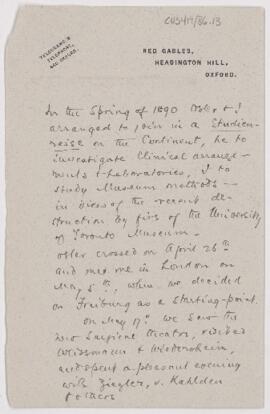 CUS417/86.13
TELEGRAMS &
TELEPHONE,
RED GABLES,
HEADINGTON HILL,
OXFORD.
In the Spring of 1890 Osler & I
arranged to join in a Studien-
reise on the Continent, he to
investigate Clinical arrange-
ments & Laboratories, I to
study Museum methods -
in view of the recent de-
struction by fire of the University
of Toronto Museum.
Osler crossed on April 26th
and met me in London on
May 5th, when we decided
on Freiburg as a starting-point.
On May 17th we saw the
new Surgical theatre, visited
Weissmann & Wiedersheim,
and spent a pleasant evening
with Ziegler, v. Kahlden
& others